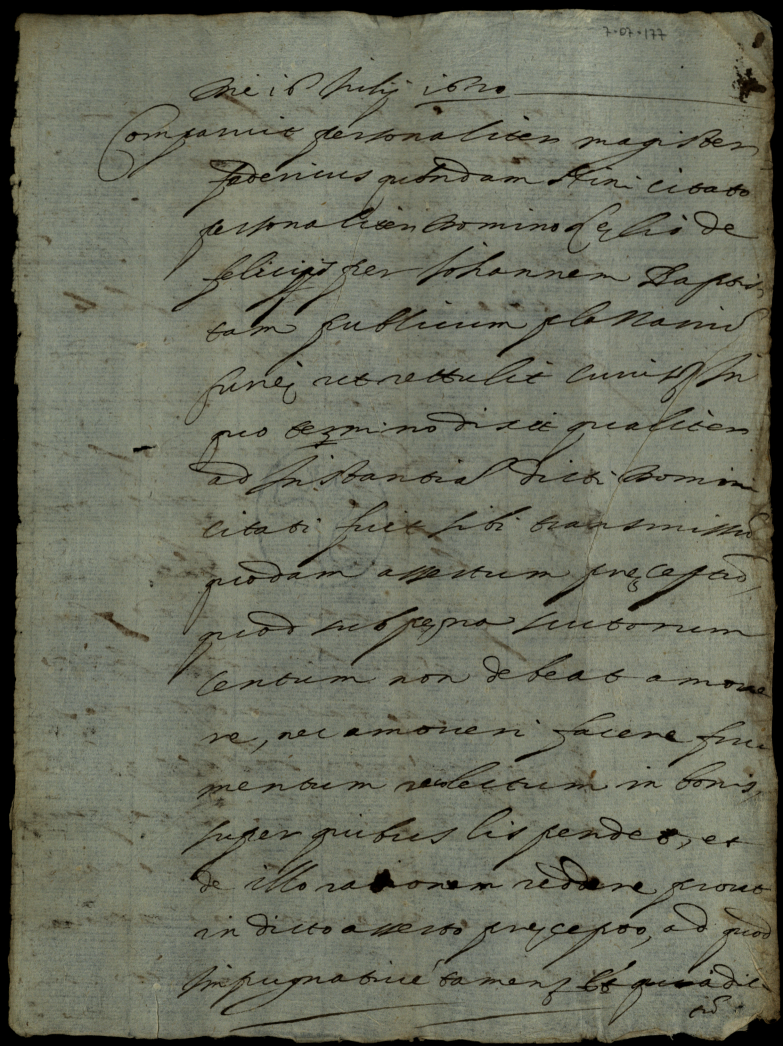 7-07-177
Die 16 Julij 1620
Comparuit personaliter magister
Federicus quondam citato
personaliter Domino Lelio de
felicijs per Johannem Baptis
tam publicum plazarium
ut rettulit In
quo termino dixit qualiter
ad Instantia dicti Domini
citati fuit sibi transmissum
quodam assertum preceptum,
quod sub pęna scutorum
centum non debeat amoue
re, nec amoueri facere fru
mentum recolectum in bonis,
super quibus lis pendet, et
de illo rationem reddere prout
in dicto asserto pręcepto, ad quod
Impugnatiue tamen